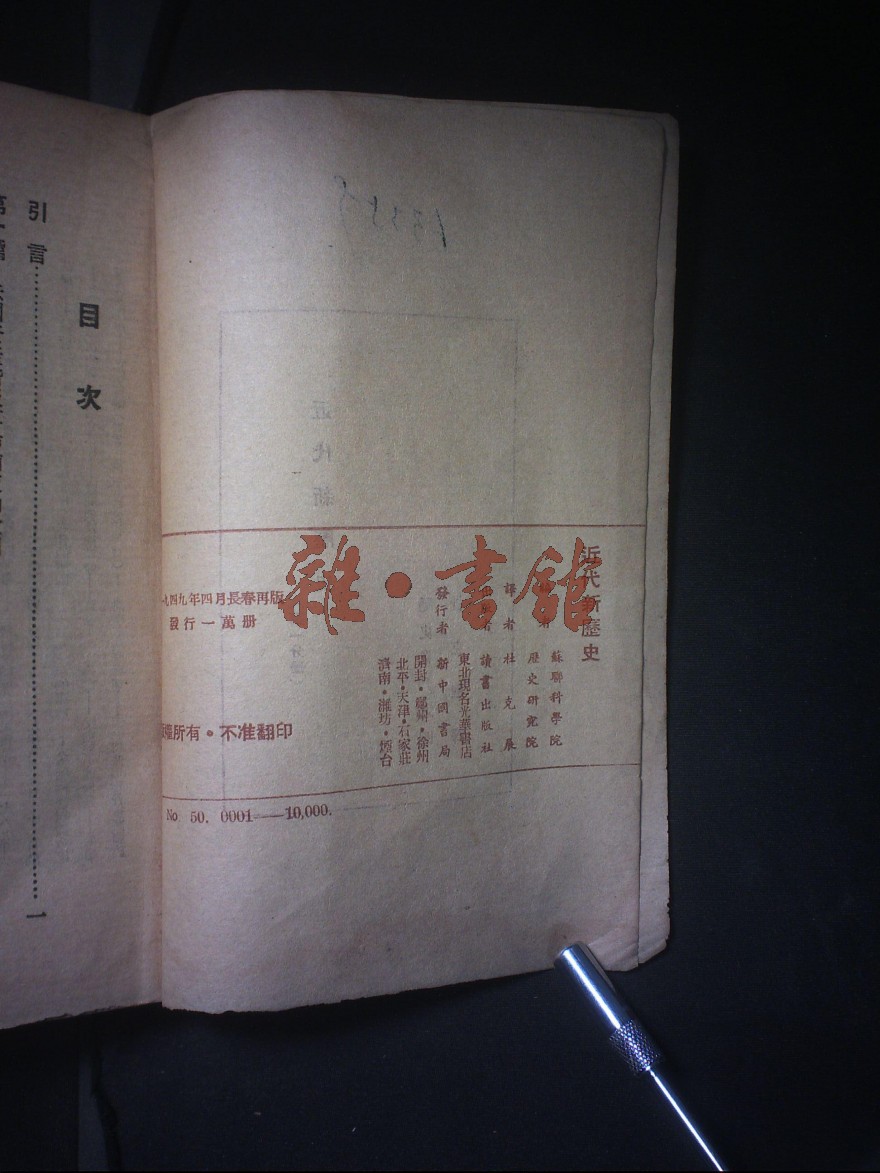 近代新歷史
蘇聯科學院
者 歷史研究院
譯者 杜克展
者 讀書出版社
東北現名光華書店
發行者 新中國書局
開封·鄭州·徐州
北平·天津·石家莊
濟南·濰坊·煙台
九四九年四月長春再版
發行一萬册
所有·不准翻印
No 50. 0001——10,000.
雜·書館
目次
引言……一